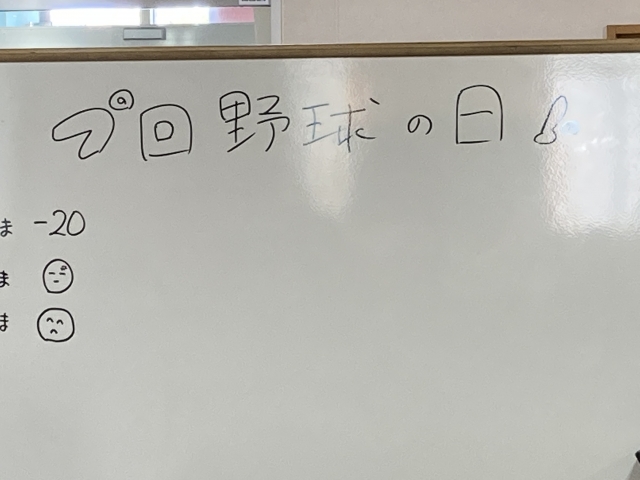 プロ野球の日
ま -20
ま
ま